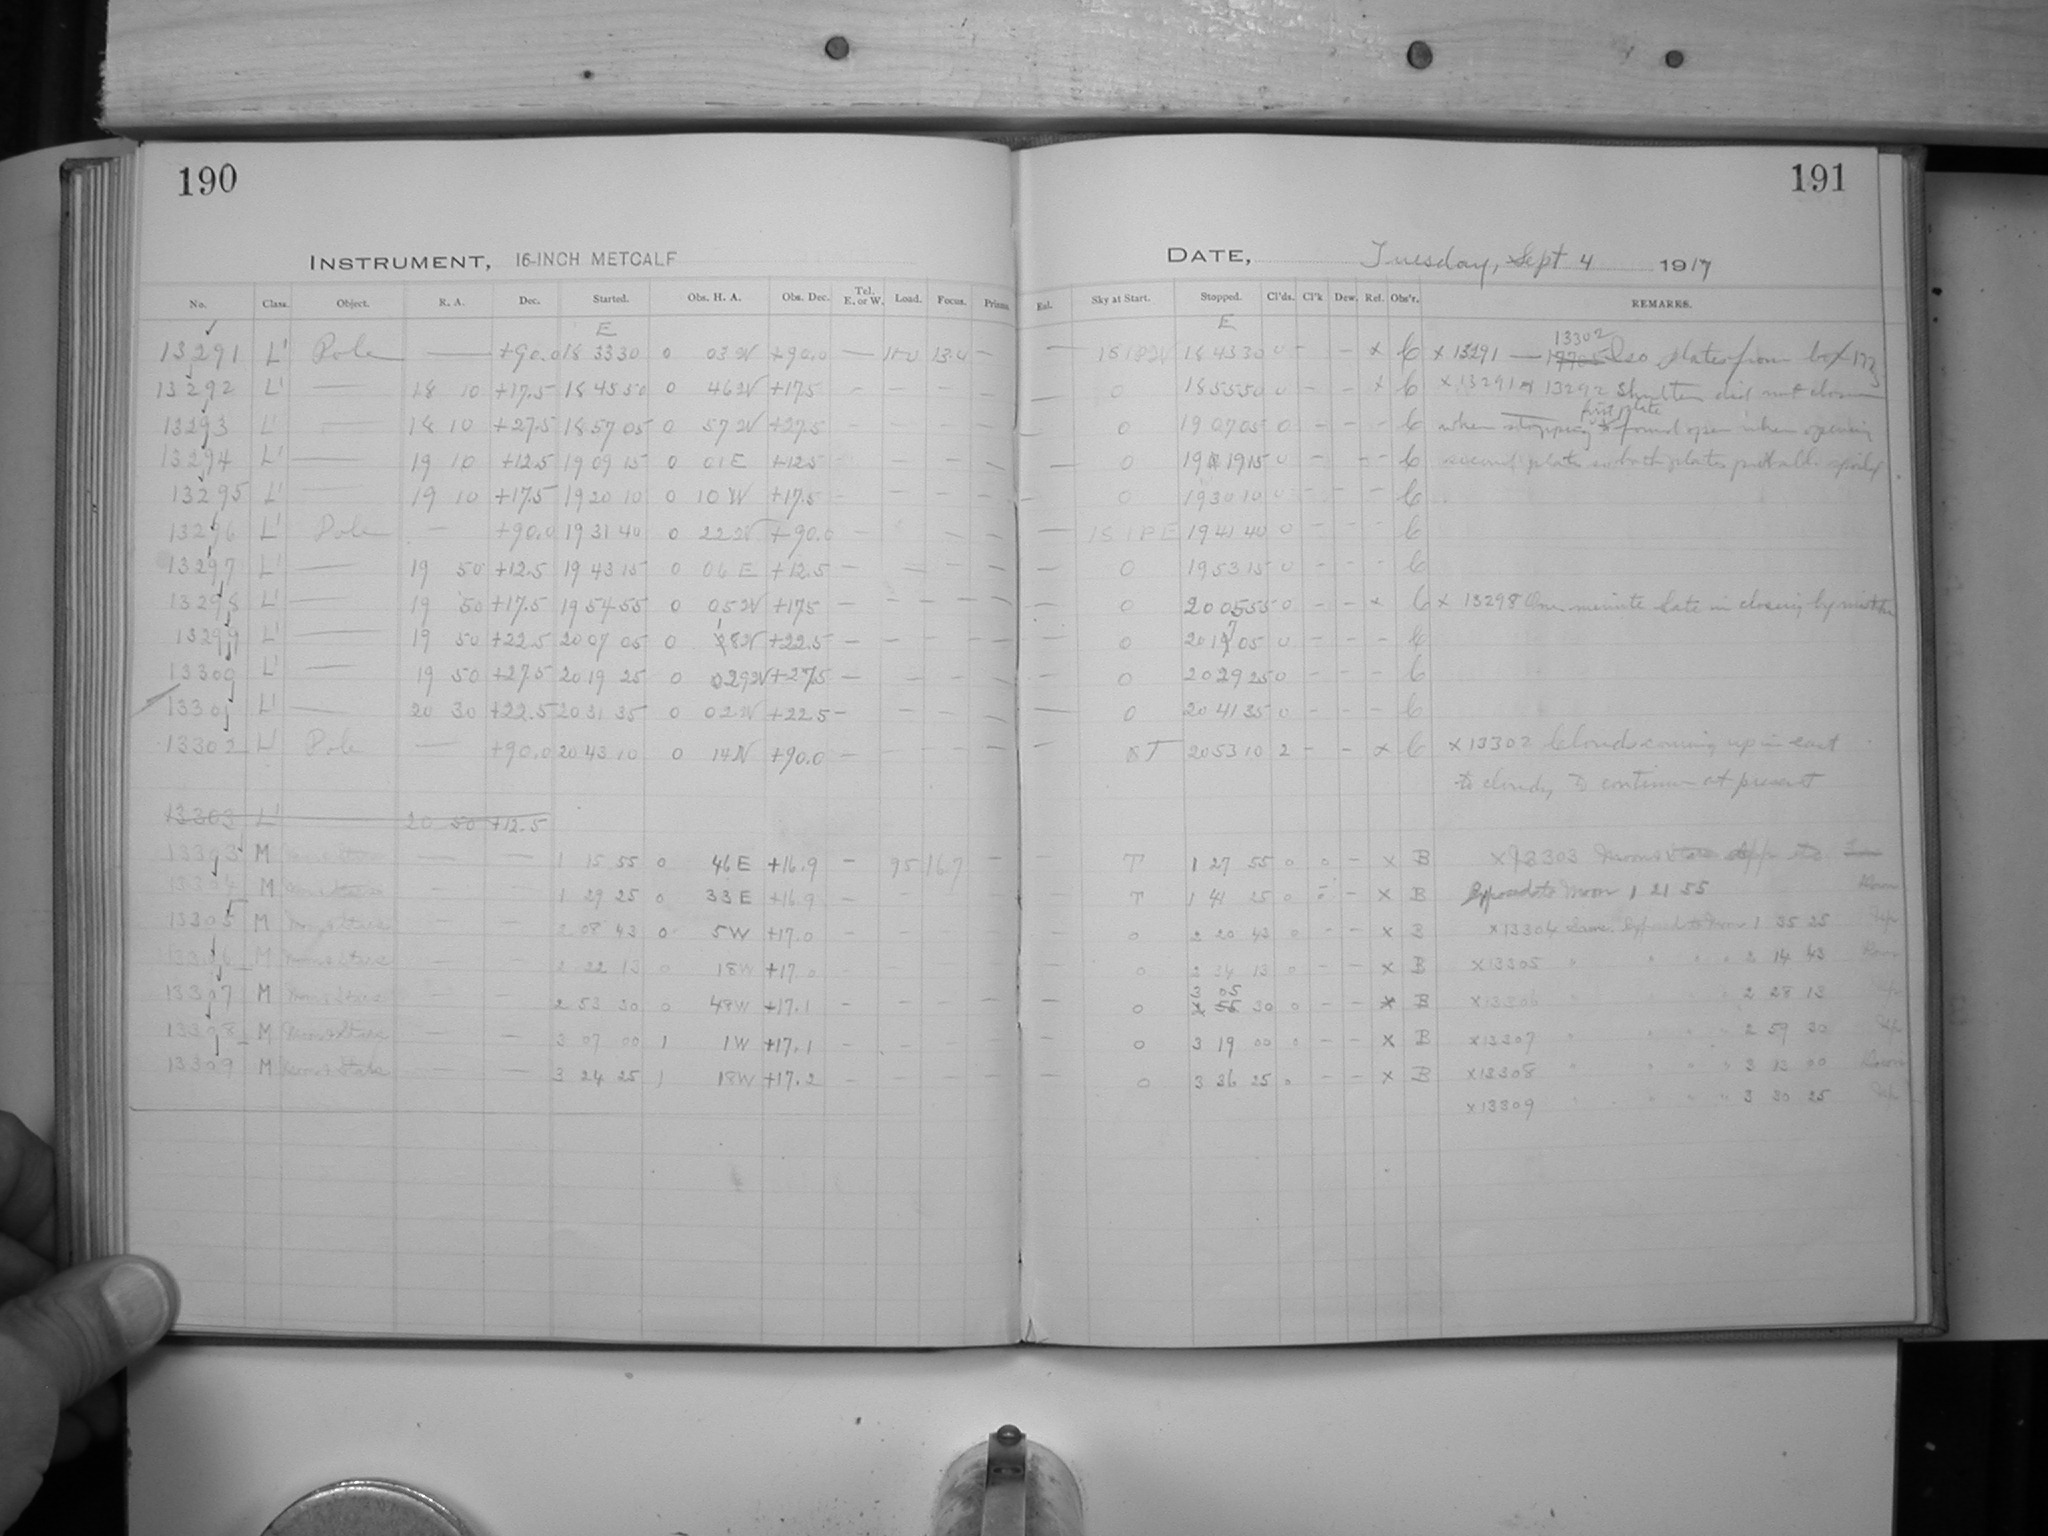 190
191
INSTRUMENT, 16-INCH METCALF
DATE, Tuesday, Sept 4 1917
No. Class. Object. R. A. Dec. Started. Obs. H. A. Obs. Dec. Tel. E. or W. Load. Focus. Prism Exl. Sky at Start. Stopped. Cl'ds. Cl'k Dew. Rel. Obs'r. REMARKS.
E E
13291 L' Pole — +90.0 18 33 30 0 03 W +90.0 — 13.0 — — 18 43 30 0 - - × C × 13291 — 13302 plates from box
13292 L' — 18 10 +17.5 18 45 50 0 46 W +17.5 - - - - — 0 18 55 50 0 - - × C × 13291 & 13292 Shutter did not close
13293 L' — 18 10 +27.5 18 57 05 0 57 W +27.5 - - - - — 0 19 07 05 0 - - - C when stopping first plate found open when opening
13294 L' — 19 10 +12.5 19 09 15 0 01 E +12.5 - - - - — 0 19 19 15 0 - - - C second plate so both plates spoiled
13295 L' — 19 10 +17.5 19 20 10 0 10 W +17.5 - - - - — 0 19 30 10 0 - - - C
13296 L' Pole — +90.0 19 31 40 0 22 W +90.0 — - - - — 19 41 40 0 - - - C
13297 L' — 19 50 +12.5 19 43 15 0 06 E +12.5 — - - - — 0 19 53 15 0 - - - C
13298 L' — 19 50 +17.5 19 54 55 0 05 W +17.5 — - - - — 0 20 05 55 0 - - × C × 13298 One minute late in closing by mistake
13299 L' — 19 50 +22.5 20 07 05 0 18 W +22.5 — - - - — 0 20 17 05 0 - - - C
13300 L' — 19 50 +27.5 20 19 25 0 29 W +27.5 — - - - — 0 20 29 25 0 - - - C
13301 L' — 20 30 +22.5 20 31 35 0 02 W +22.5 — - - - — 0 20 41 35 0 - - - C
13302 L' Pole — +90.0 20 43 10 0 14 W +90.0 — - - - — 20 53 10 2 - - × C × 13302 Clouds coming up in east
to cloudy to continue at present
13303 L' 20 50 +12.5
13303 M — — 1 15 55 0 46 E +16.9 — 95 16.7 — — T 1 27 55 0 0 - × B × 13303
13304 M — — 1 29 25 0 33 E +16.9 - - - - — T 1 41 25 0 - - × B Exposed to Moon 1 21 55
13305 M Moon & Stars — — 2 08 43 0 5 W +17.0 - - - - — 0 2 20 43 0 - - × B × 13304 Same. Exposed to Moon 1 35 25
13306 M Moon & Stars — — 2 22 13 0 18 W +17.0 - - - - — 0 2 34 13 0 - - × B × 13305 " " " " 2 14 43
13307 M Moon & Stars — — 2 53 30 0 48 W +17.1 - - - - — 0 3 05 30 0 - - × B × 13306 " " " " 2 28 13
13308 M Moon & Stars — — 3 07 00 1 1 W +17.1 - - - - — 0 3 19 00 0 - - × B × 13307 " " " " 2 59 30
13309 M Moon & Stars — — 3 24 25 1 18 W +17.2 - - - - — 0 3 36 25 0 - - × B × 13308 " " " " 3 13 00
× 13309 " " " " 3 30 25